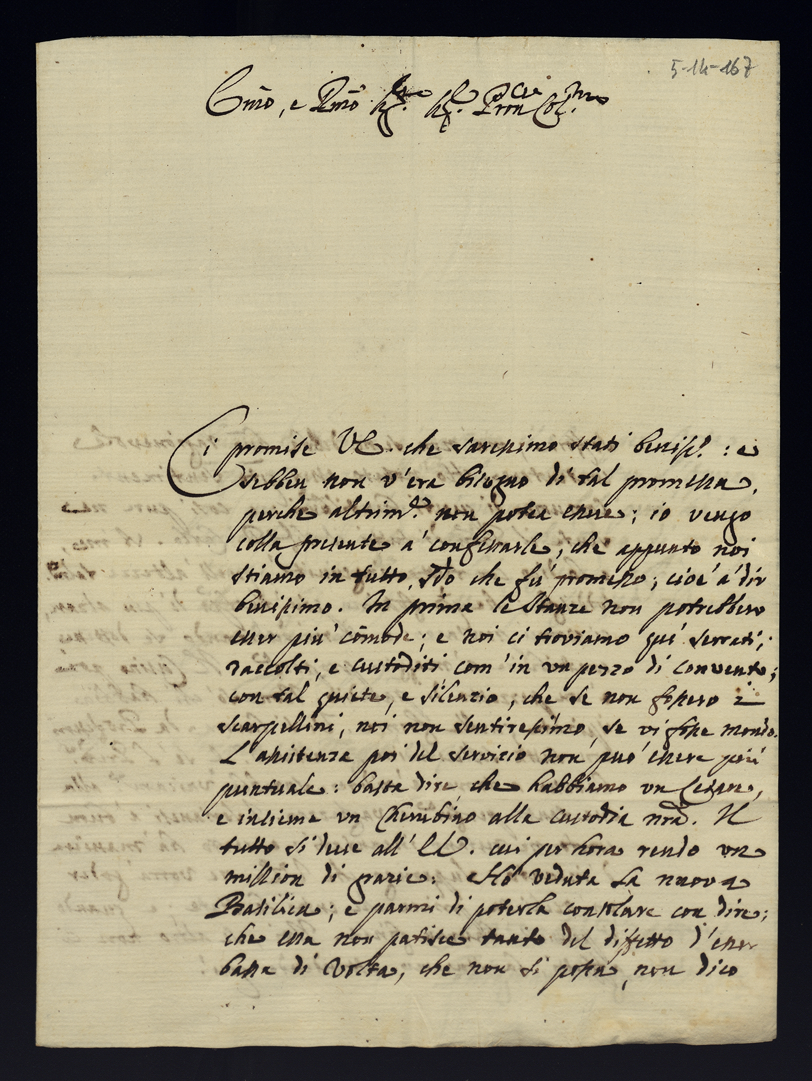 5-14-167
Emo, e Rmo Sre. Sre. Pron Cle Col.mo
Ci promise VE. che saressimo stati beniss.o : e
sebben non v'era bisogno di tal promessa,
perche altrim.te non potea essere; io vengo
colla presente à confessarle, che appunto noi
stiamo in tutto, che fù promesso; cioè à dir
benissimo. In prima le stanze non potrebbero
esser più cõmode; e noi ci troviamo quì serrati,
raccolti, e custoditi com'in un pezzo di convento;
con tal quiete, e silenzio, che se non fossero i
scarpellini, noi non sentiressimo, se vi fosse mondo.
L'assistenza poi del servizio non può essere più
puntuale: basta dire, che habbiamo un Cesare,
e insieme un Cherubino alla custodia nrã. Il
tutto si deve all'EV. cui per hora rendo un
million di grazie: Hò veduta la nuova
Basilica; e parmi di poterla consolare con dire;
che essa non patisce tanto del difetto d'esser
bassa di Volta, che non si possa, non dico